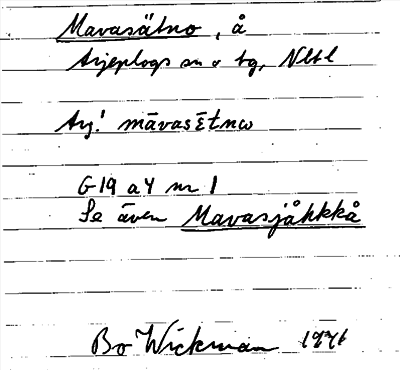 Mavasätno, å
Arjeplogs sn o tg, Nltl
Arj! māvasētnω
G19 a 4 nr 1
Se även Mavasjåhkkå
Bo Wickman